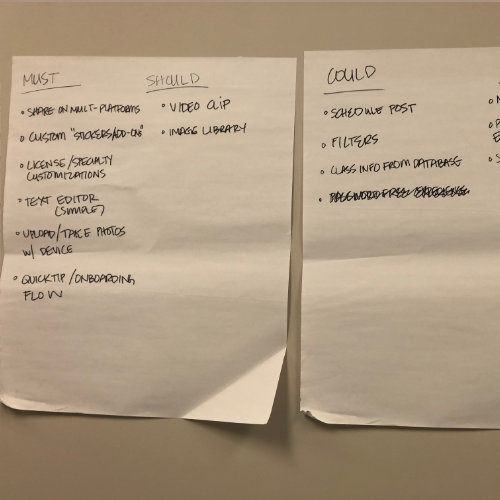 MUST
• SHARE ON MULTI-PLATFORMS
• CUSTOM "STICKERS/ADD-ONS"
• LICENSE/SPECIALTY
CUSTOMIZATIONS
• TEXT EDITOR
(SIMPLE)
• UPLOAD/TAKE PHOTOS
W/ DEVICE
• QUICKTIP/ONBOARDING
FLOW
SHOULD
• VIDEO CLIP
• IMAGE LIBRARY
COULD
• SCHEDULE POST
• FILTERS
• CLASS INFO FROM DATABASE
• PASSWORD FREE EXPERIENCE